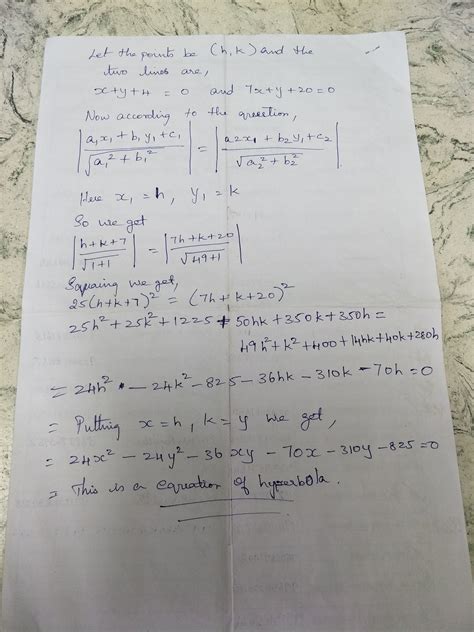 Let the points be (h,k) and the
two lines are,
x+y+4 = 0 and 7x+y+20=0
Now according to the question,
|a₁x₁+b₁y₁+c₁ / √a₁²+b₁²| = |a2x₁+b₂y₁+c₂ / √a₂²+b₂²|
Here x₁=h, y₁=k
So we get
|h+k+7 / √1+1| = |7h+k+20 / √49+1|
Squaing we get,
25(h+k+7)² = (7h+k+20)²
25h²+25k²+1225+50hk+350k+350h=
49h²+k²+400+14hk+40k+280h
= 24h² - 24k²-825-36hk-310k-70h=0
= Putting x=h, k=y we get,
= 24x²-24y²-36xy-70x-310y-825=0
= This is a equation of hyperbola.